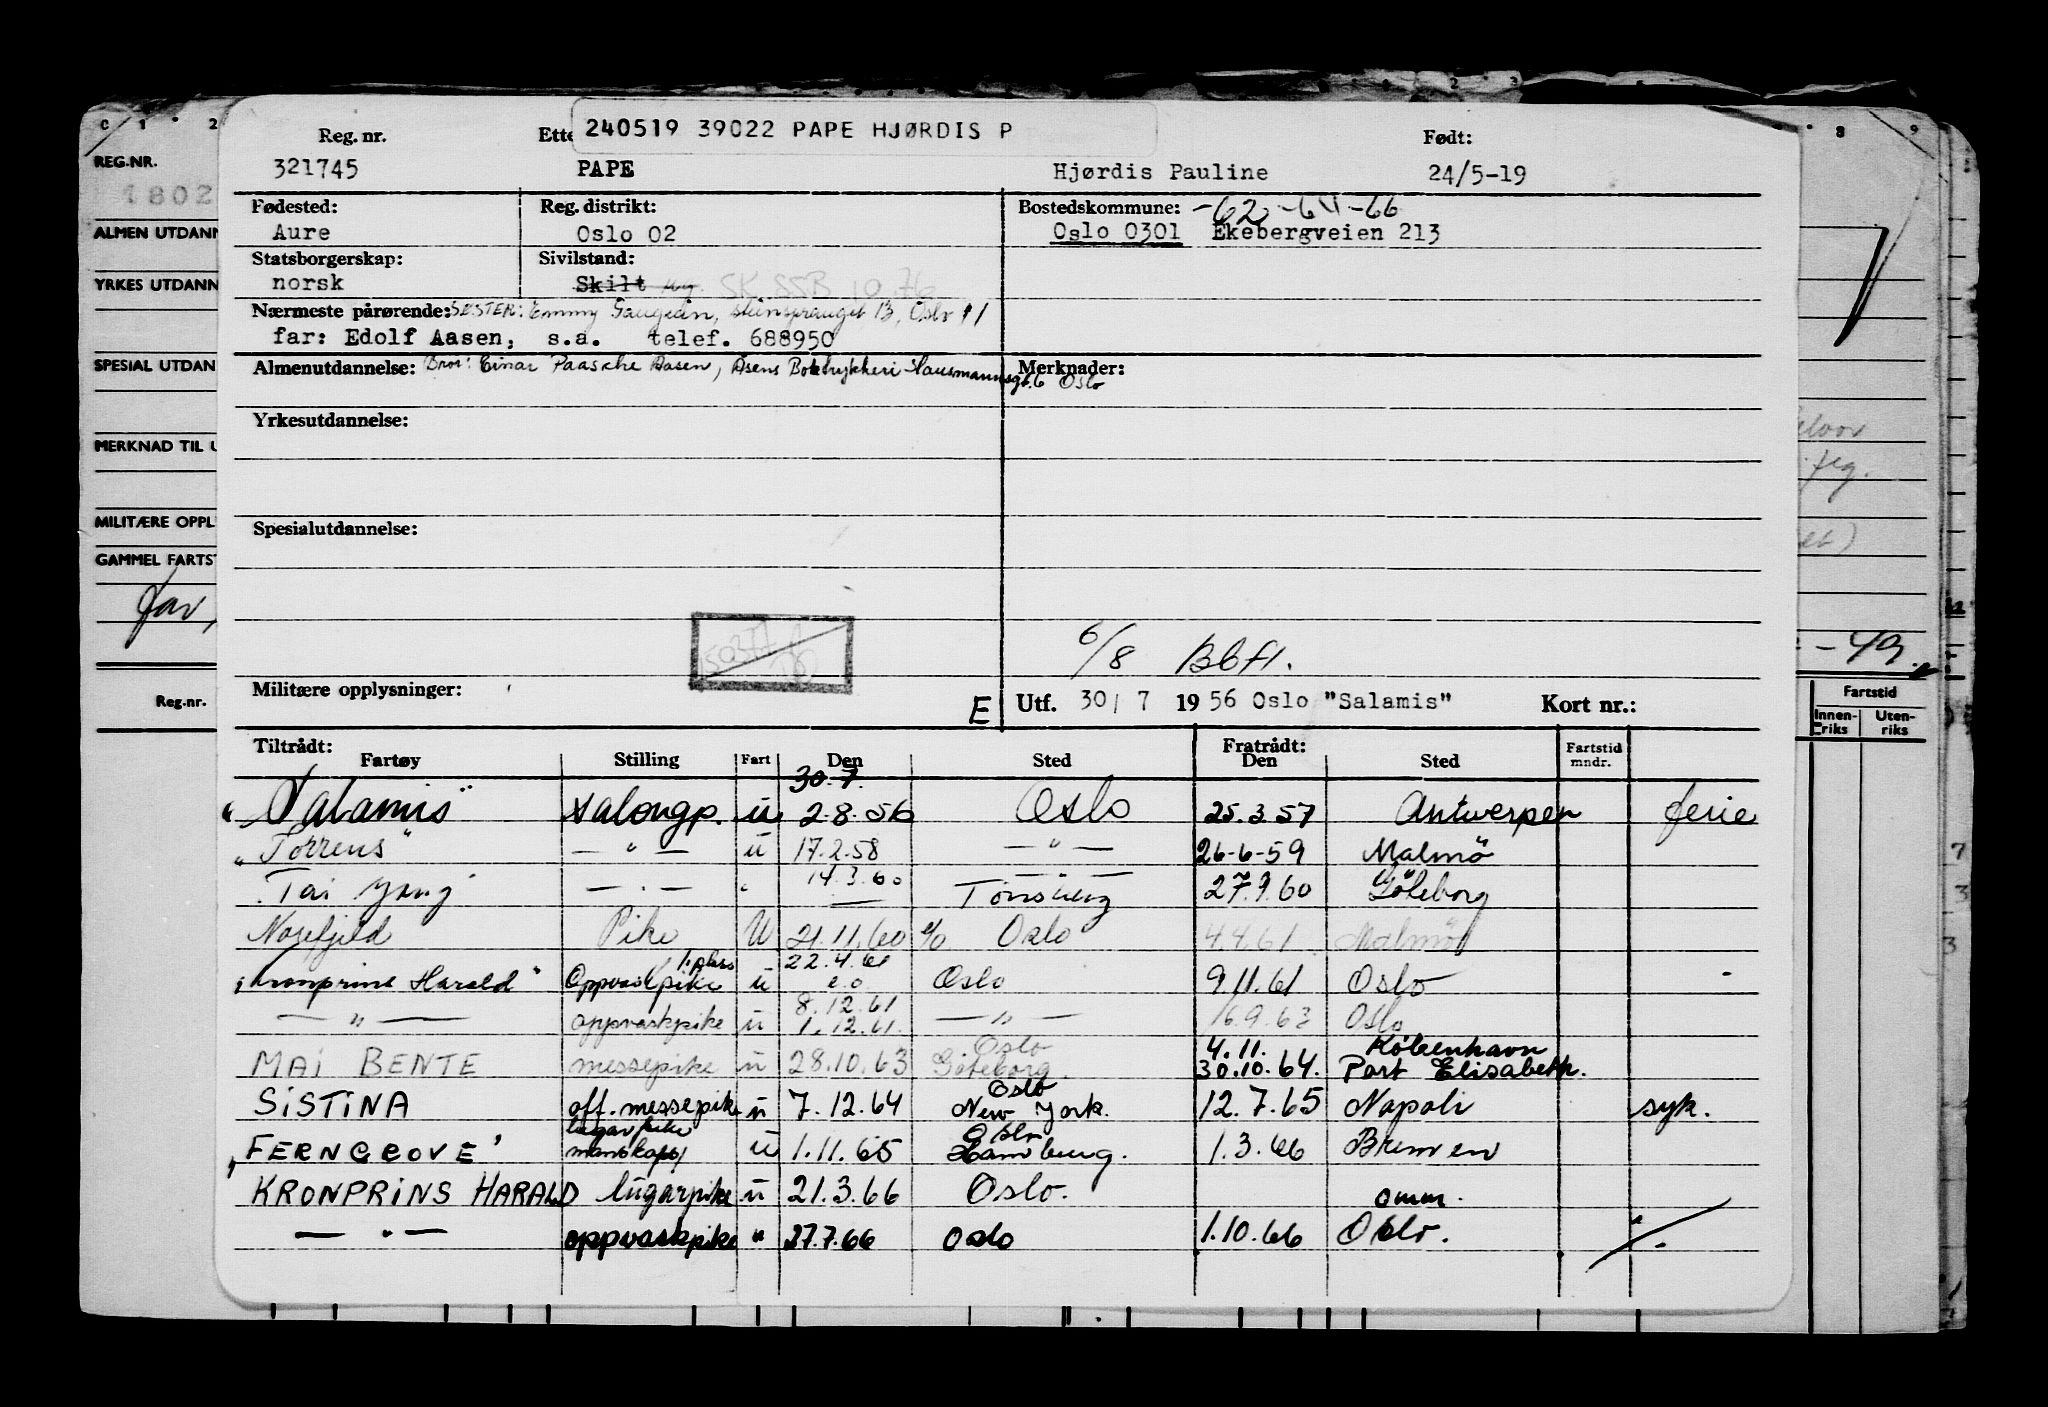 240519 39022 PAPE HJØRDIS P
Reg. nr. Ette Født:
321745 PAPE Hjørdis Pauline 24/5-19
Fødested: Reg. distrikt: Bostedskommune: -62 -64 -66
Aure Oslo 02 Oslo 0301 Ekebergveien 213
Statsborgerskap: Sivilstand:
norsk Skilt ug. SK SSB 10.76
Nærmeste pårørende: SØSTER: Emmy 13, Oslo 11
far: Edolf Aasen, s.a. telef. 688950
Almenutdannelse: Bror: Einar Paasche Aasen, Åsens Boktrykkeri Hausmannsgt. 6 Oslo Merknader:
Yrkesutdannelse:
Spesialutdannelse:
6/8 Bbfl.
Militære opplysninger: E Utf. 30/7 1956 Oslo "Salamis" Kort nr.:
Tiltrådt: Fratrådt:
Fartøy Stilling Fart Den Sted Den Sted Fartstid mndr.
30.7.
"Salamis" salongp. u 2.8.56 Oslo 25.3.57 Antwerpen ferie
"Torrens" — " — u 17.2.58 — " — 26-6-59 Malmö
14.3.60 — " —
Tai Yang — " — " — Tønsberg 27.9.60 Göteborg
Norefjeld Pike U 21.11.60 e/o Oslo 4.4.61 Malmö
22.4.61
"Kronprins Harald" Oppvaskpike u e.o Oslo 9.11.61 Oslo
8.12.61
— " — oppvaskpike u 1.12.61. — " — 16.9.63 Oslo
Oslo 4.11. København
MAI BENTE messepike u 28.10.63 Göteborg. 30.10.64. Port Elisabeth.
Oslo
SISTINA off. messepike u 7.12.64 New York. 12.7.65 Napoli syk.
lugarpike Oslo
"FERNGROVE" mannskaps/ u 1.11.65 Hamburg. 1.3.66 Bremen
KRONPRINS HARALD lugarpike u 21.3.66 Oslo. omm.
— " — oppvaskpike " 27.7.66 Oslo 1.10.66 Oslo.
C 1 2
REG.NR.
1802
ALMEN UTDANN
YRKES UTDANN
SPESIAL UTDAN
MERKNAD TIL U
MILITÆRE OPPL
GAMMEL FARTST
far,
Reg.nr.
8 9
fly.
-49.
Fartstid
Innenriks Utenriks
7
3
3